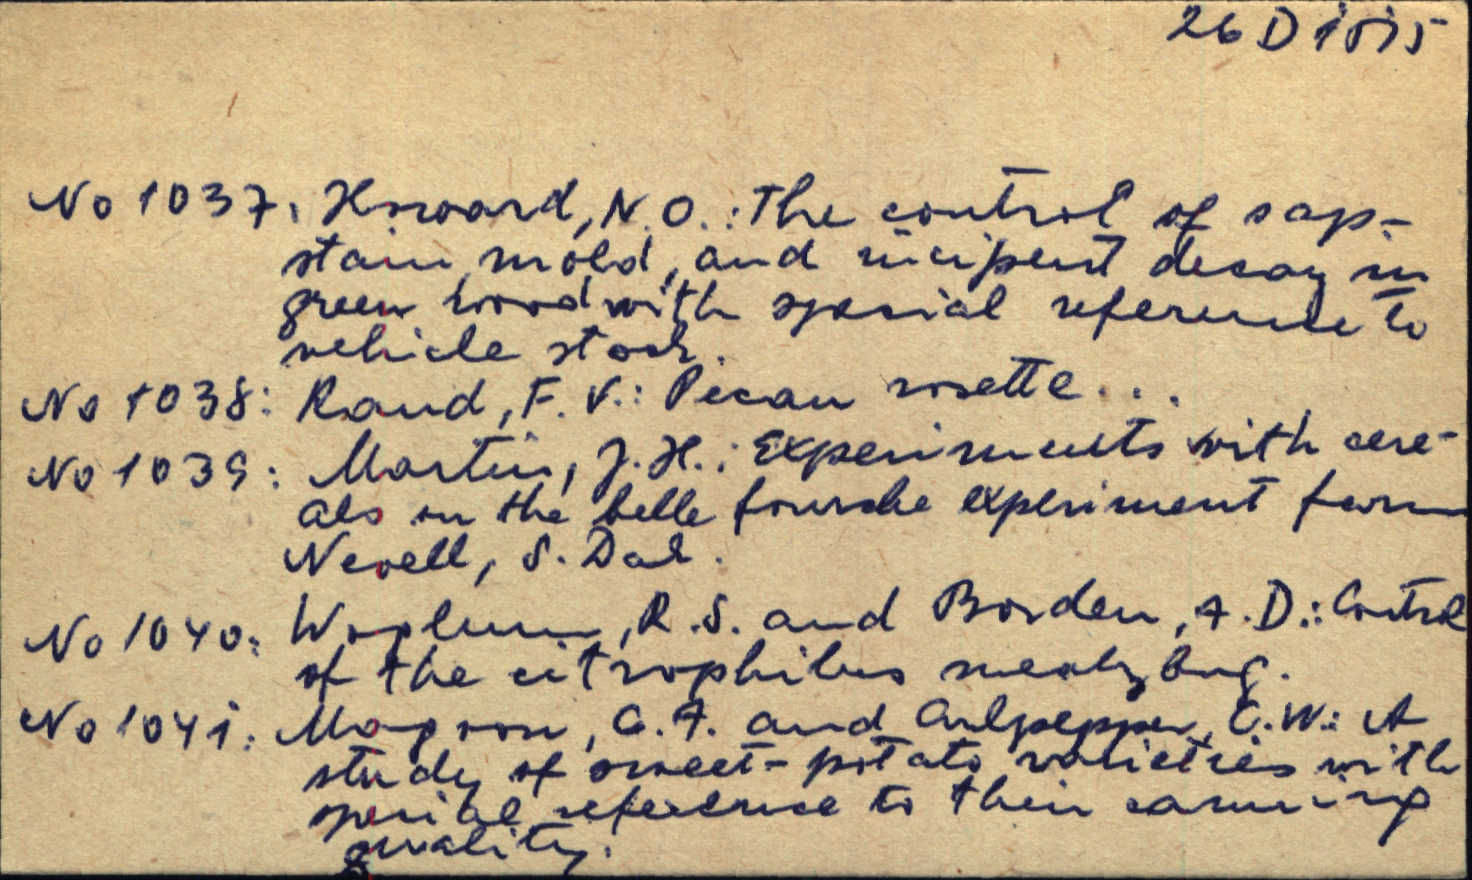 26 D 1515
No 1037. Howard, N. O.: The control of sap-
stain, mold, and incipient decay in
green wood with special reference to
vehicle stock.
No 1038: Rand, F. V.: Pecan rosette...
No 1039: Martin, J. H.: Experiments with cere-
als on the belle fourche experiment farm
Newell, S. Dak.
No 1040: Woglum, R. S. and Borden, A. D.: Control
of the citrophilus mealybug.
No 1041: Magoon, C. A. and Culpepper, C. W.: A
study of sweet-potato varieties with
special reference to their canning
quality.